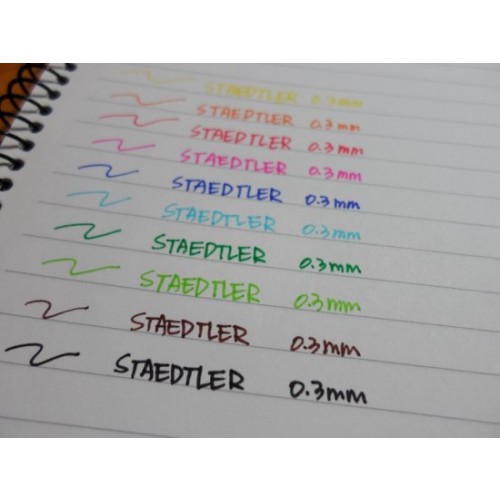 STAEDTLER 0.3mm
STAEDTLER 0.3mm
STAEDTLER 0.3mm
STAEDTLER 0.3mm
STAEDTLER 0.3mm
STAEDTLER 0.3mm
STAEDTLER 0.3mm
STAEDTLER 0.3mm
STAEDTLER 0.3mm
STAEDTLER 0.3mm